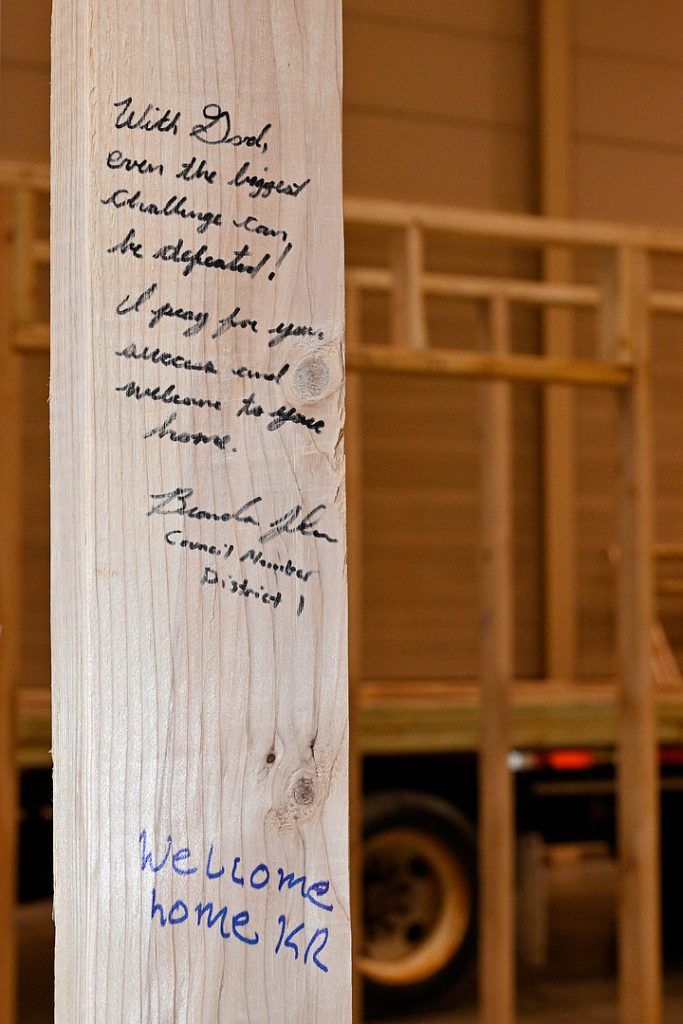 With God,
even the biggest
challenge can
be defeated!
I pray for your
success and
welcome to your
home.
Council Member
District 1
Welcome
home KR